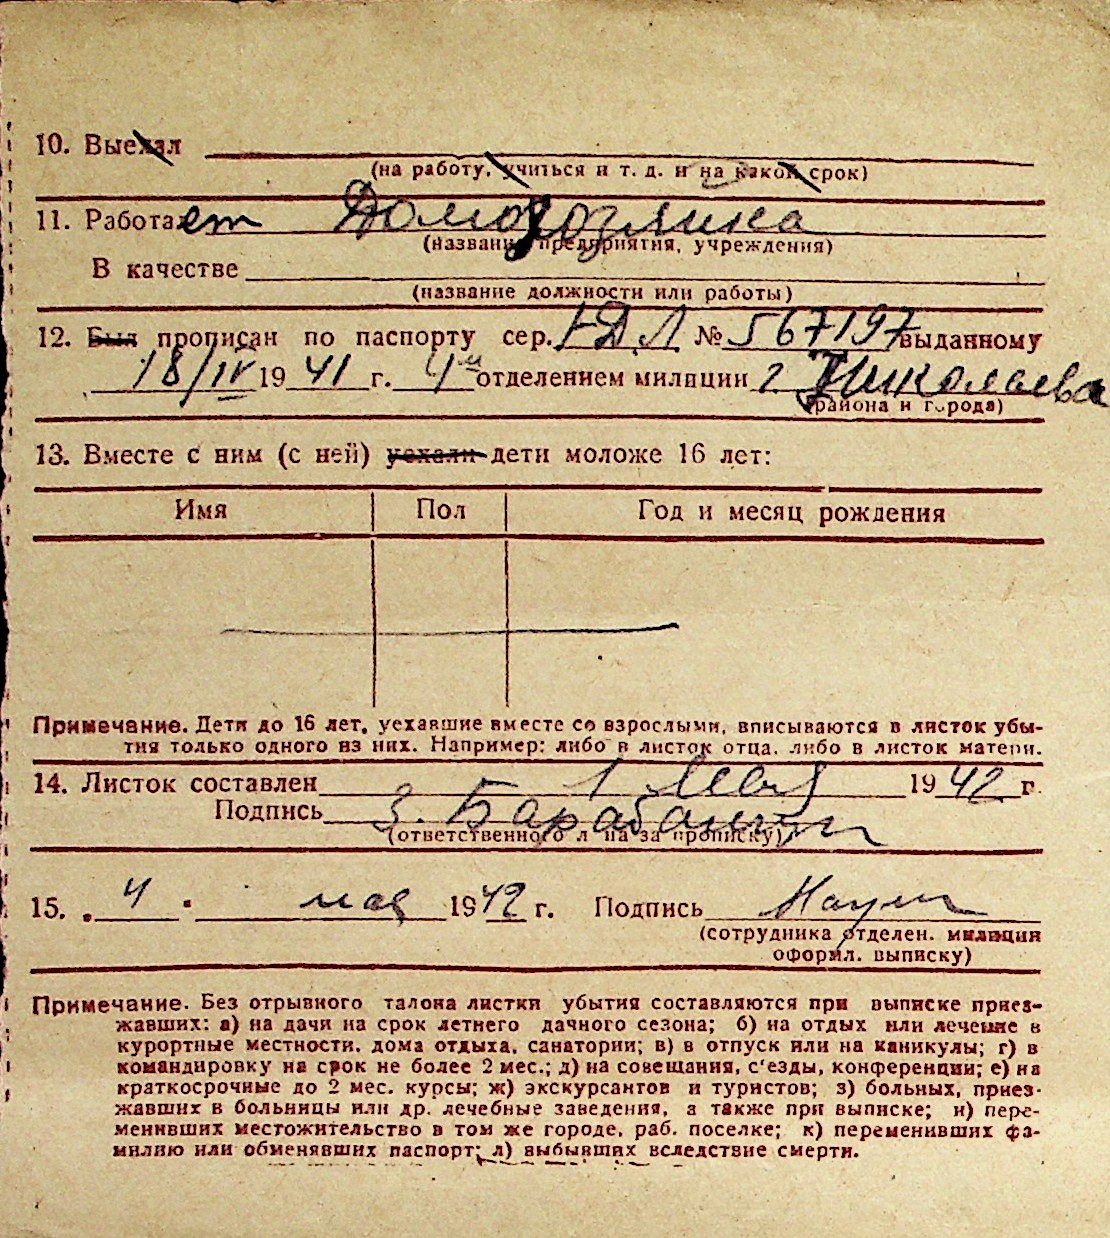 10. Выехал
(на работу, учиться и т. д. и на какой срок)
11. Работает Домохозяйка
(название предприятия, учреждения)
В качестве
(название должности или работы)
12. Был прописан по паспорту сер. № 567197 выданному
18/IV 1941 г. 4м отделением милиции г Николаева
(района и города)
13. Вместе с ним (с ней) уехали дети моложе 16 лет:
Имя Пол Год и месяц рождения
Примечание. Дети до 16 лет, уехавшие вместе со взрослыми, вписываются в листок убы-
тия только одного из них. Например: либо в листок отца, либо в листок матери.
14. Листок составлен 1 мая 1942 г.
Подпись З.
(ответственного л на за прописку)
15. 4 мая 1942 г. Подпись
(сотрудника отделен. милиции
оформл. выписку)
Примечание. Без отрывного талона листки убытия составляются при выписке приез-
жавших: а) на дачи на срок летнего дачного сезона; б) на отдых или лечение в
курортные местности, дома отдыха, санатории; в) в отпуск или на каникулы; г) в
командировку на срок не более 2 мес.; д) на совещания, с'езды, конференции; е) на
краткосрочные до 2 мес. курсы; ж) экскурсантов и туристов; з) больных, приез-
жавших в больницы или др. лечебные заведения, а также при выписке; и) пере-
менивших местожительство в том же городе, раб. поселке; к) переменивших фа-
милию или обменявших паспорт; л) выбывших вследствие смерти.